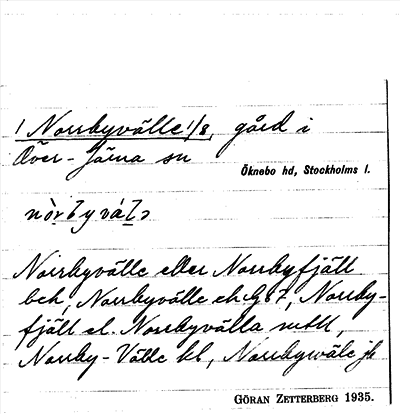 1 Norrbyvälle 1/8, gård i
Över-Järna sn
Öknebo hd, Stockholms l.
nòrbyválə
Norrbyvälle eller Norrbyfjäll
beh, Norrbyvälle ek GS7, Norrby-
fjäll el. Norrbyvälla mtll,
Norrby-Välle bl, Norrbywäle jb
GÖRAN ZETTERBERG 1935.